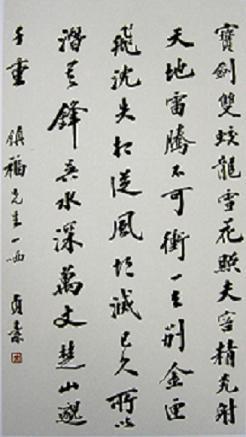 寶劍雙蛟龍雪花照夫容精光射
天地雷騰不可衝一去別金匣
飛沈失相從風胡滅已久所以
潛其鋒吳水深萬丈楚山邈
千重 鎮福先生一哂